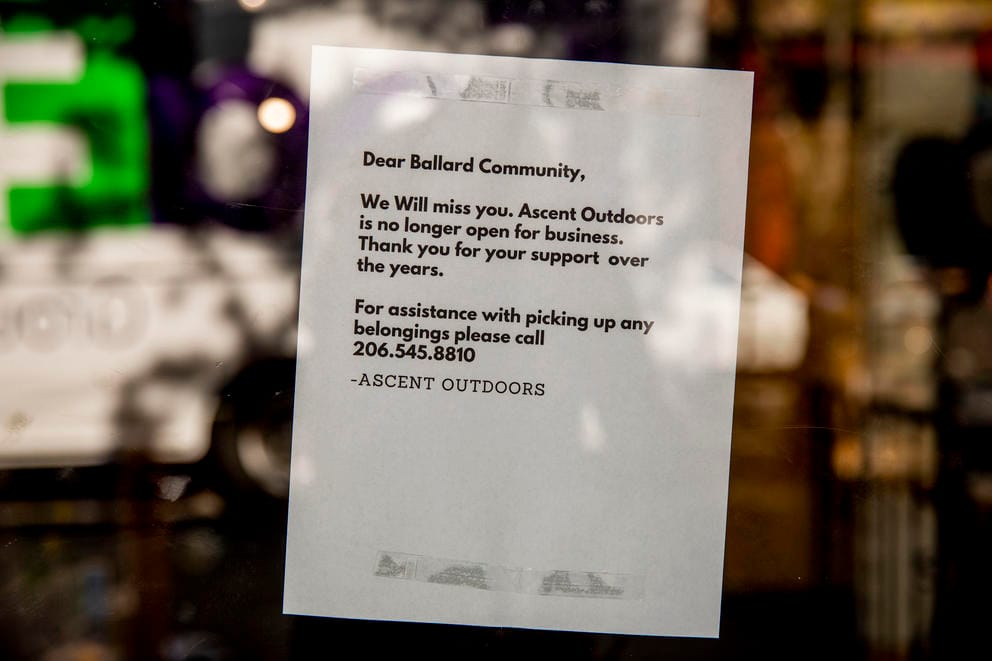 Dear Ballard Community,
We Will miss you. Ascent Outdoors
is no longer open for business.
Thank you for your support  over
the years.
For assistance with picking up any
belongings please call
206.545.8810
-ASCENT OUTDOORS